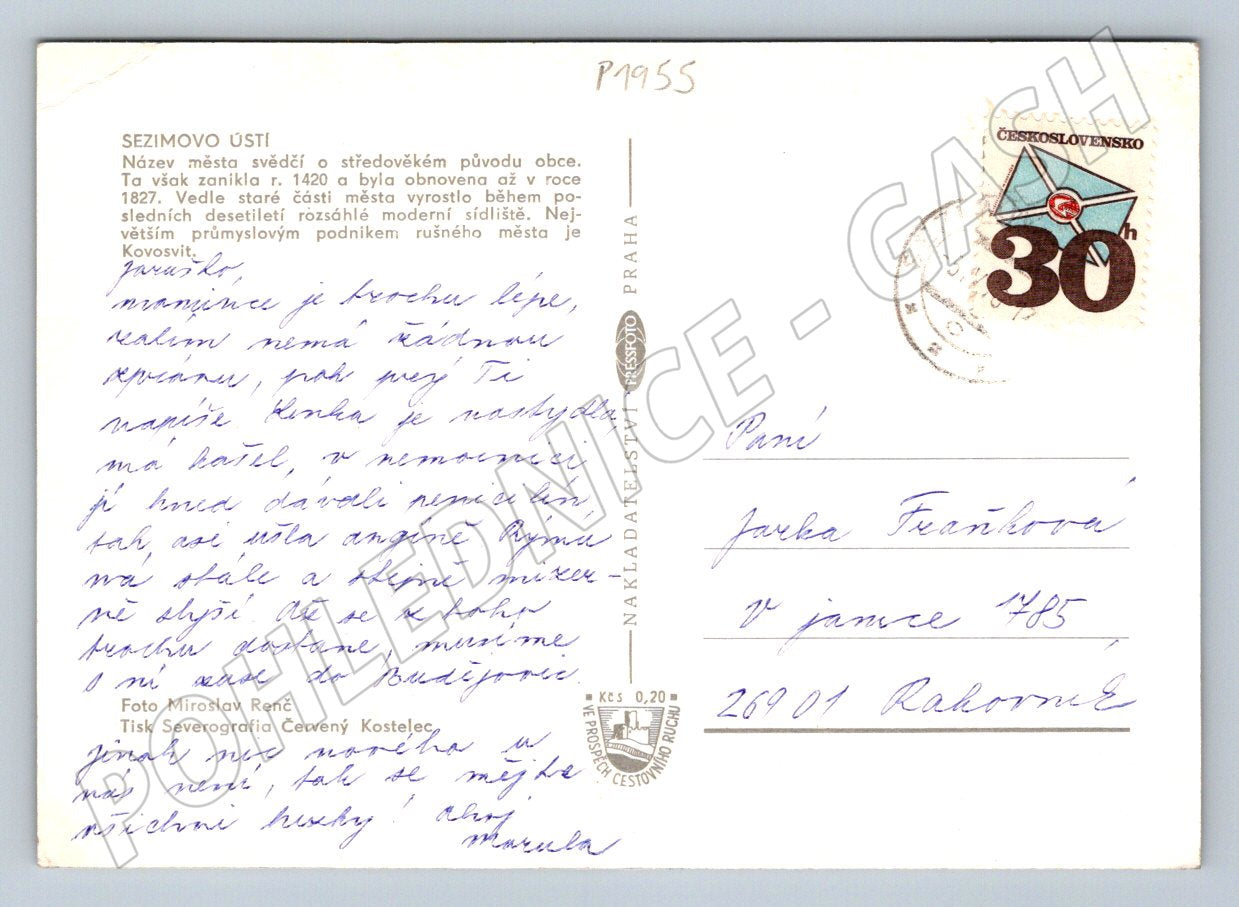 P1955
SEZIMOVO ÚSTÍ
Název města svědčí o středověkém původu obce.
Ta však zanikla r. 1420 a byla obnovena až v roce
1827. Vedle staré části města vyrostlo během po-
sledních desetiletí rozsáhlé moderní sídliště. Nej-
větším průmyslovým podnikem rušného města je
Kovosvit.
Jaruško,
mamince je trochu lépe,
zatím nemá žádnou
zprávu, pak prý Ti
napíše. Lenka je nastydlá,
má kašel, v nemocnici
jí hned dávali penicilín,
tak asi ušla angíně. Rýmu
má stále a stejně mizer-
ně slyší. Až se z toho
trochu dostane, musíme
s ní zase do Budějovic.
Foto Miroslav Renč
Tisk Severografia Červený Kostelec
Jinak nic nového u
nás není, tak se mějte
všichni hezky! Ahoj
NAKLADATELSTVÍ PRESSFOTO PRAHA
Kčs 0,20
VE PROSPĚCH CESTOVNÍHO RUCHU
ČESKOSLOVENSKO
30h
Paní
Jarka Fraňková
V jamce 1785
26901 Rakovník
POHLEDNICE - GASH